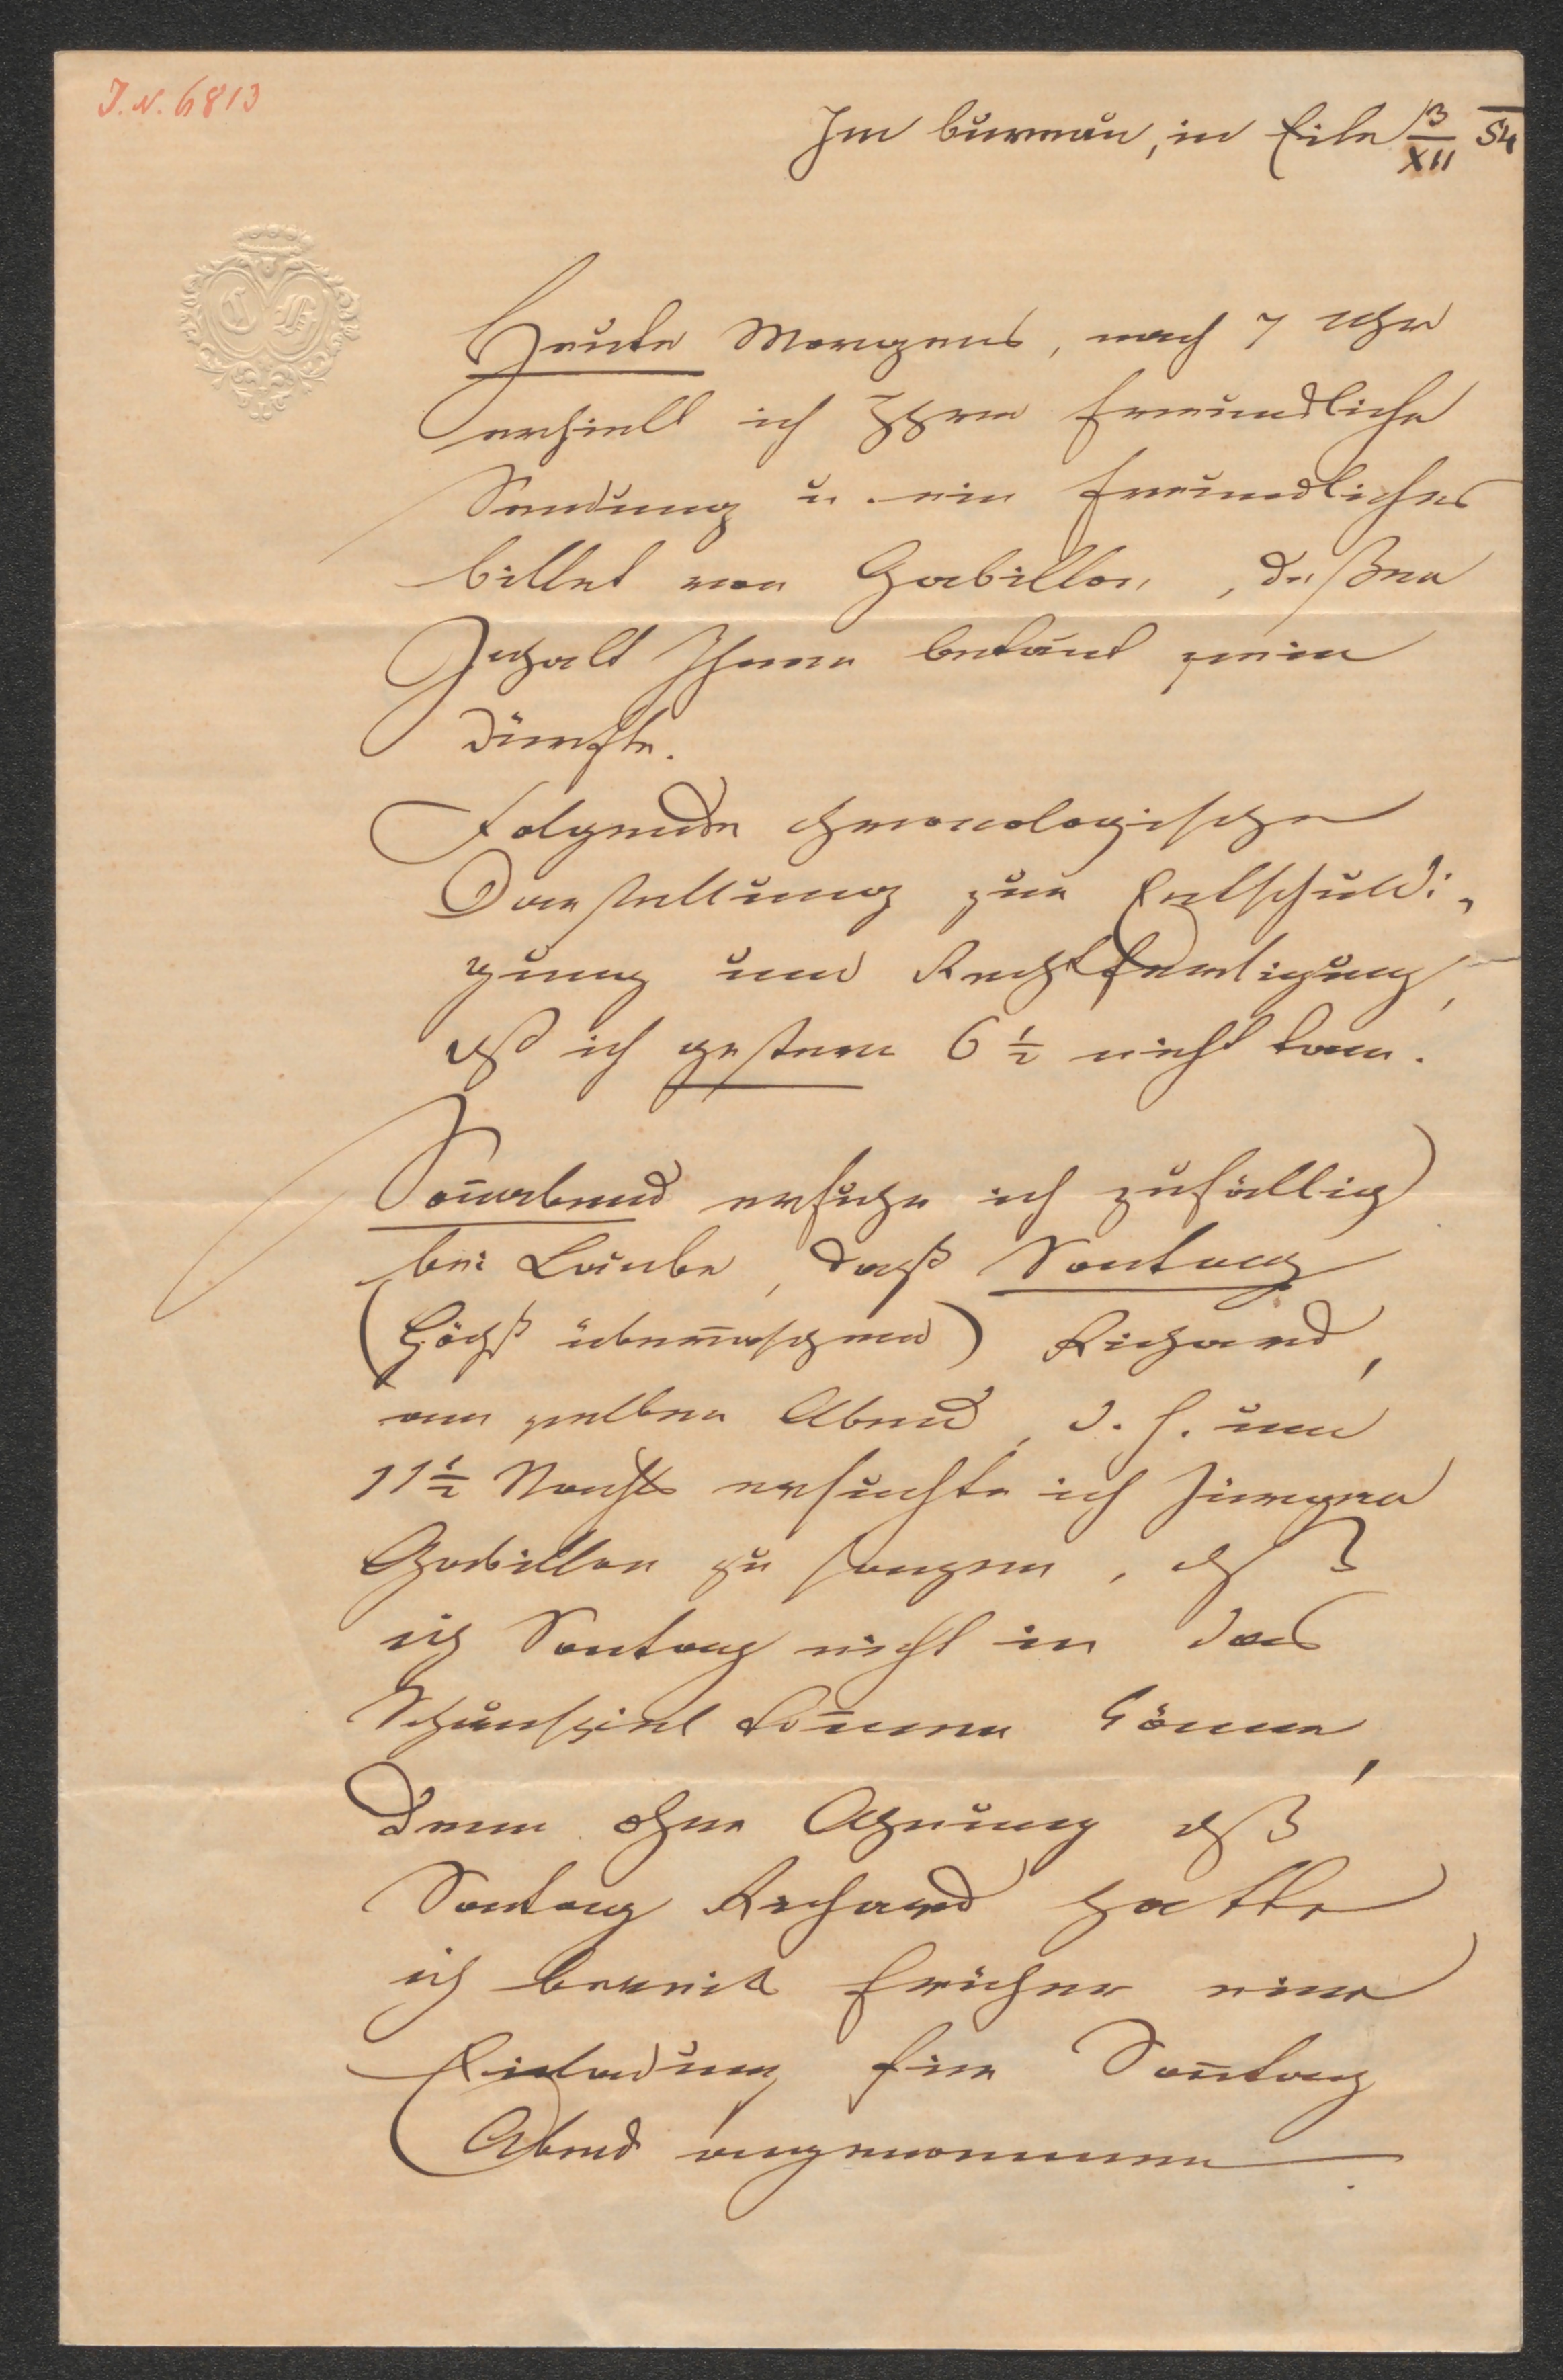 J. N. 6813
Im bureau, in Eile 3/XII 54
C G
Heute Morgens, nach 7 Uhr
erhielt ich Ihre freundliche
Sendung u. ein freundliches
billet von Gabillon, deßen
Gehalt Ihnen bekant sein
dürfte.
Folgende chronologische
Darstellung zur Entschuldi„
gung und Rechtfertigung,
dß ich gestern 6 ½ nicht kam.
Son̄abend erfuhr ich zufällig
bei Laube, daß Sontag
(höchst überraschend) Richard,
am selben Abend, d. h. um
11 ½ Nachts ersuchte ich
Gabillon zu sagen, dß
ich Sontag nicht in das
Schauspiel kom̄en könne,
denn ohne Ahnung dß
Sontag Richard hatte
ich bereits früher eine
Einladung für Son̄tag
Abend angenommen.